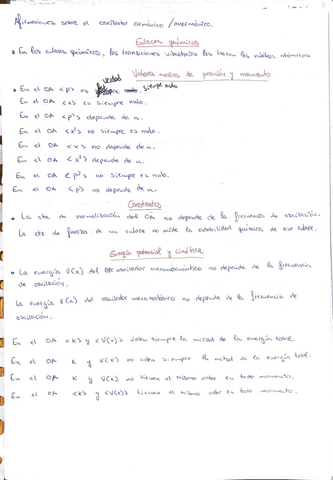 Afirmaciones sobre el oscilador armónico / anarmónico.
Enlaces químicos
• En los enlaces químicos, las transiciones vibratorias las hacen los núcleos atómicos
Valores medios de posición y momento
• En el OA <p> es siempre nulo
En el OA <x> es siempre nulo.
En el OA <p²> depende de n.
En el OA <x²> no siempre es nulo.
En el OA <x> no depende de n.
En el OA <x²> depende de n.
En el OA <p²> no siempre es nulo.
En el OA <p> no depende de n.
Constantes
• La cte de normalización del OA no depende de la frecuencia de oscilación.
La cte de fuerza de un enlace no mide la estabilidad química de ese enlace.
Energía potencial y cinética
• La energía V(x) del oscilador mecanocuántico no depende de la frecuencia
de oscilación.
La energía V(x) del oscilador mecanoclásico no depende de la frecuencia de
oscilación.
En el OA <K> y <V(x)> valen siempre la mitad de la energía total.
En el OA K y V(x) no valen siempre la mitad de la energía total.
En el OA K y V(x) no tienen el mismo valor en todo momento.
En el OA <K> y <V(x)> tienen el mismo valor en todo momento.